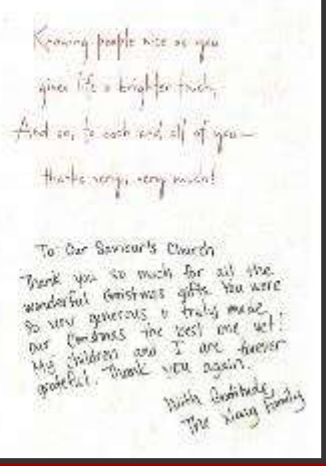 Knowing people nice as you
gives life a brighter touch,
And so, to each and all of you—
thanks very, very much!
To Our Saviour's Church
Thank you so much for all the
wonderful Christmas gifts. You were
so very generous & truly made
our Christmas the best one yet!
My children and I are forever
grateful. Thank you again.
With Gratitude,
The Family